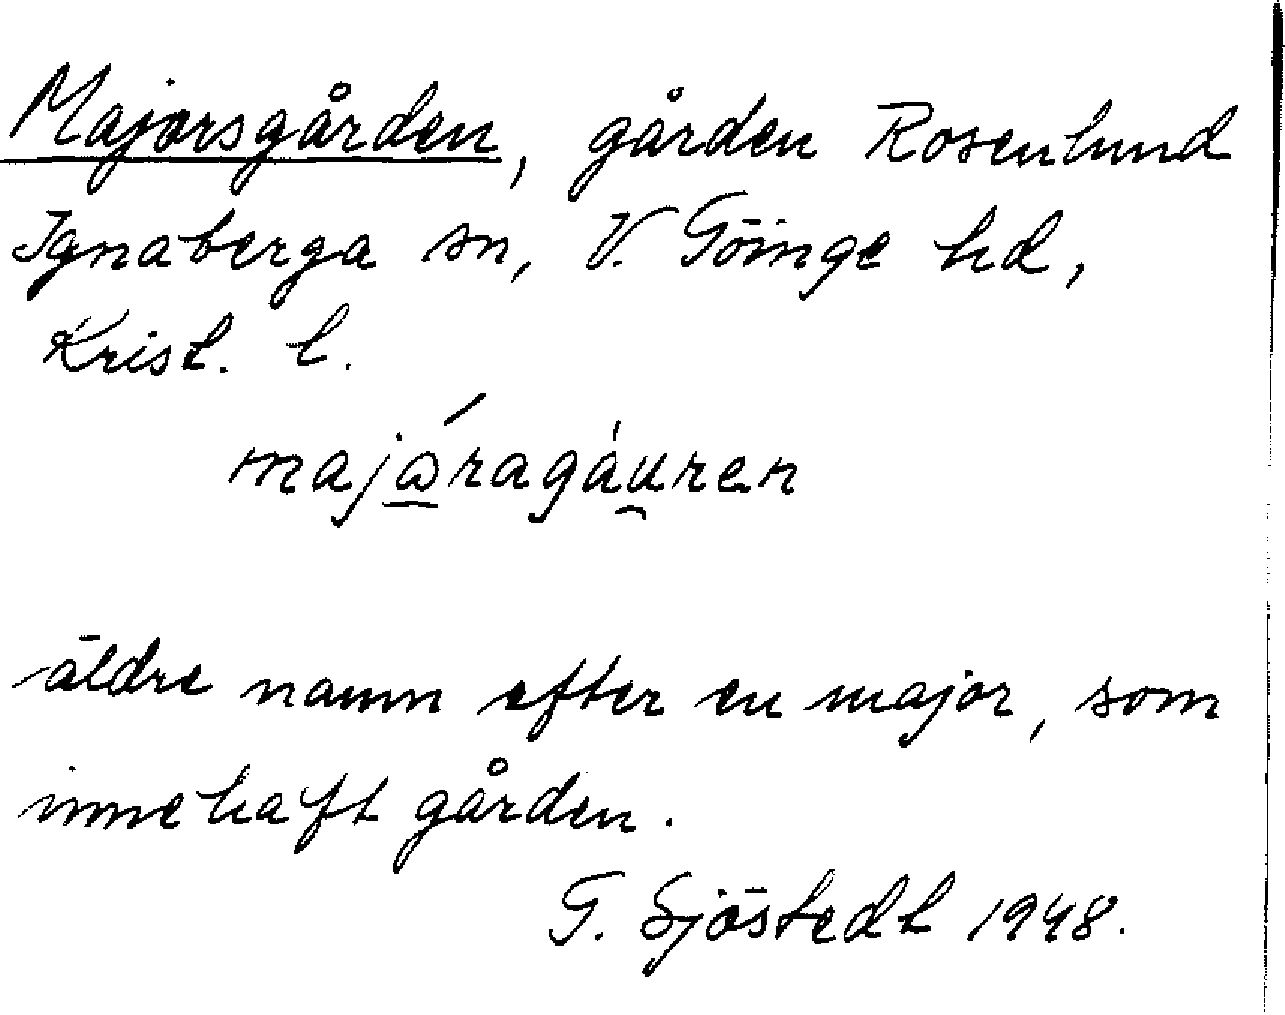 Majorsgården, gården Rosenlund
Ignaberga sn, V. Göinge hd,
Krist. l.
majɷ̱́ragáu̯ren
äldre namn efter en major, som
innehaft gården.
G. Sjöstedt 1948.